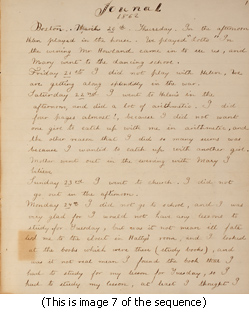 Journal
1862
Boston, March 20th Thursday. In the afternoon
Helen played in the house. We played "Lotto". In
the evening Mr Howland came in to see us, and
Mary went to the dancing school.
Friday 21st I did not play with Helen. We
are getting along splendidly in the war.
Saturday 22nd I went to Helen's in the
afternoon, and did a lot of arithmetic, I did
four pages almost!, because I did not want
one girl to catch up with me in arithmetic, and
the other reason that I did so many sums was
because I wanted to catch up with another girl.
Mother went out in the evening with Mary &
Sunday 23rd I went to church. I did not
go out in the afternoon.
Monday 24th I did not go to school, and I was
very glad for I would not have any lessons to
study for Tuesday, but was it not mean all
me to the closet in Hatty's room, and I looked
at the books which were there (study books), and
was it not real mean I found the book that I
had to study for my lesson for Tuesday, so I
had to study my lesson, at least I thought I
(This is image 7 of the sequence)